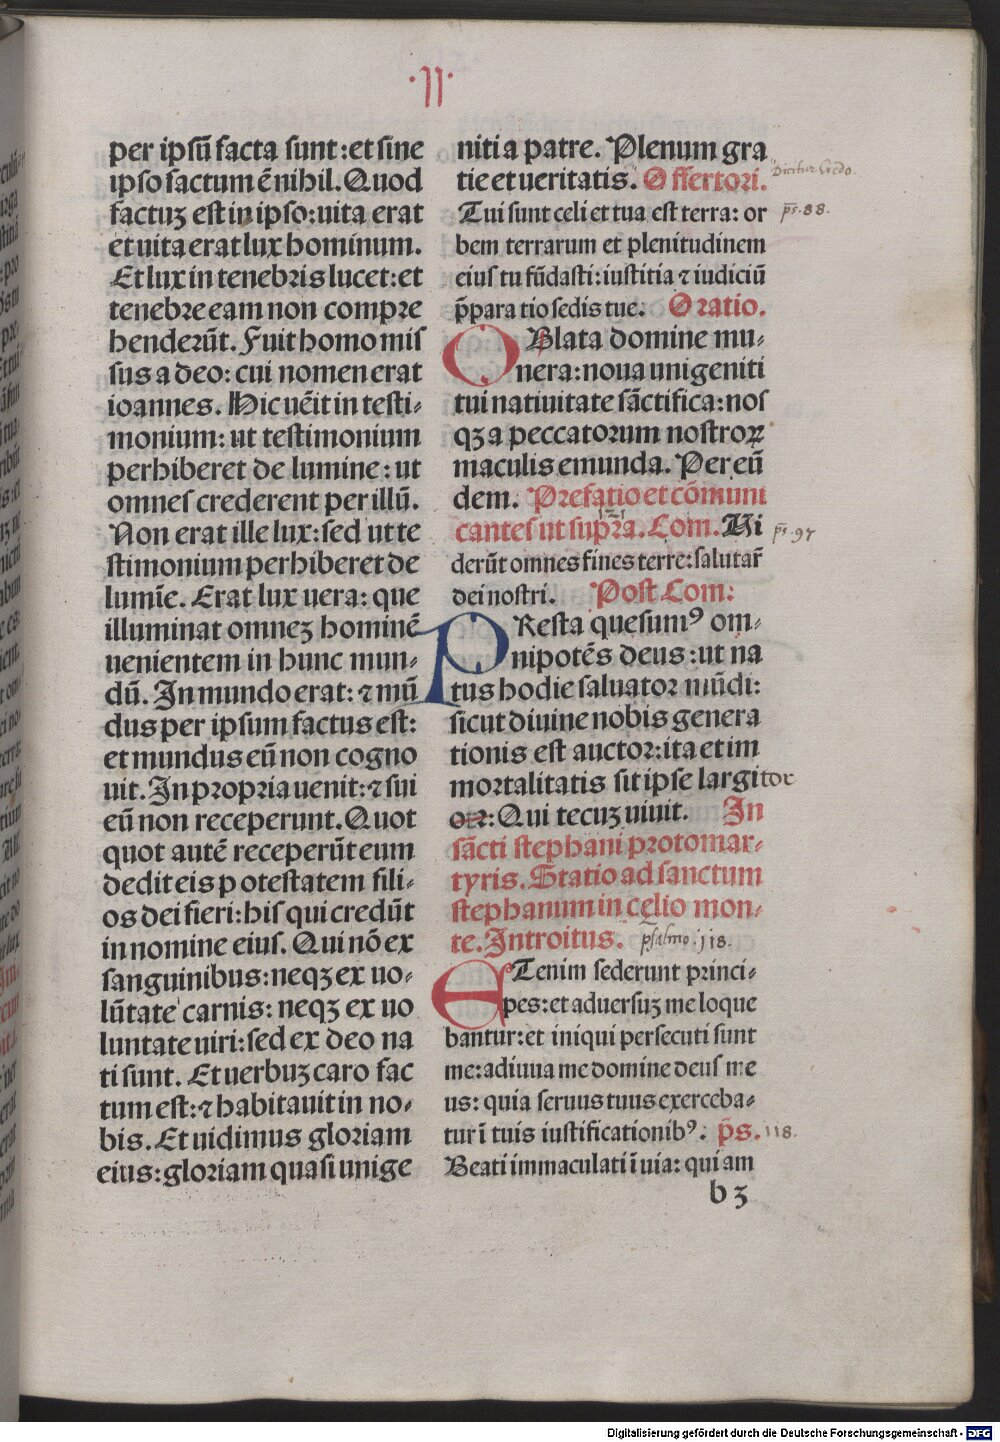 ·II·
per ipsũ facta sunt: et sine
ipso factum ẽ nihil. Quod
factuʒ est in ipso: uita erat
et uita erat lux hominum.
Et lux in tenebris lucet: et
tenebre eam non compre
henderũt. Fuit homo mis
sus a deo: cui nomen erat
ioannes. Hic uẽit in testi-
monium: ut testimonium
perhiberet de lumine: ut
omnes crederent per illũ.
Non erat ille lux: sed ut te
stimonium perhiberet de
lumĩe. Erat lux uera: que
illuminat omneʒ hominẽ
uenientem in hunc mun-
dũ. In mundo erat: ⁊ mũ
dus per ipsum factus est:
et mundus eũ non cogno
uit. In propria uenit: ⁊ sui
eũ non receperunt. Quot
quot autẽ receperũt eum
dedit eis potestatem fili-
os dei fieri: his qui credũt
in nomine eius. Qui nõ ex
sanguinibus: neqʒ ex uo-
lũtate carnis: neqʒ ex uo
luntate uiri: sed ex deo na
ti sunt. Et uerbuʒ caro fac
tum est: ⁊ habitauit in no-
bis. Et uidimus gloriam
eius: gloriam quasi unige
niti a patre. Plenum gra
tie et ueritatis. Offertori.
Dicitur Credo.
Tui sunt celi et tua est terra: or
ps. 88.
bem terrarum et plenitudinem
eius tu fũdasti: iustitia ⁊ iudiciũ
p̃paratio sedis tue. Oratio.
OBlata domine mu-
nera: noua unigeniti
tui natiuitate sãctifica: nos
qʒ a peccatorum nostroꝝ
maculis emunda. Per eũ
dem. Prefatio et cõmuni
cantes ut supra. Com. Ui
ps. 97
derũt omnes fines terre: salutar̃
dei nostri. Post Com:
PResta quesumꝰ om-
nipotẽs deus: ut na
tus hodie saluator mũdi:
sicut diuine nobis genera
tionis est auctor: ita et im
mortalitatis sit ipse largitor
or: Qui tecuʒ uiuit. In
sãcti stephani protomar-
tyris. Statio ad sanctum
stephanum in celio mon-
te. Introitus. psalmo. 118.
ETenim sederunt princi-
pes: et aduersuʒ me loque
bantur: et iniqui persecuti sunt
me: adiuua me domine deus me
us: quia seruus tuus exerceba-
tur ĩ tuis iustificationibꝰ. p̃s. 118.
Beati immaculati ĩ uia: qui am
b ʒ
Digitalisierung gefördert durch die Deutsche Forschungsgemeinschaft - DFG